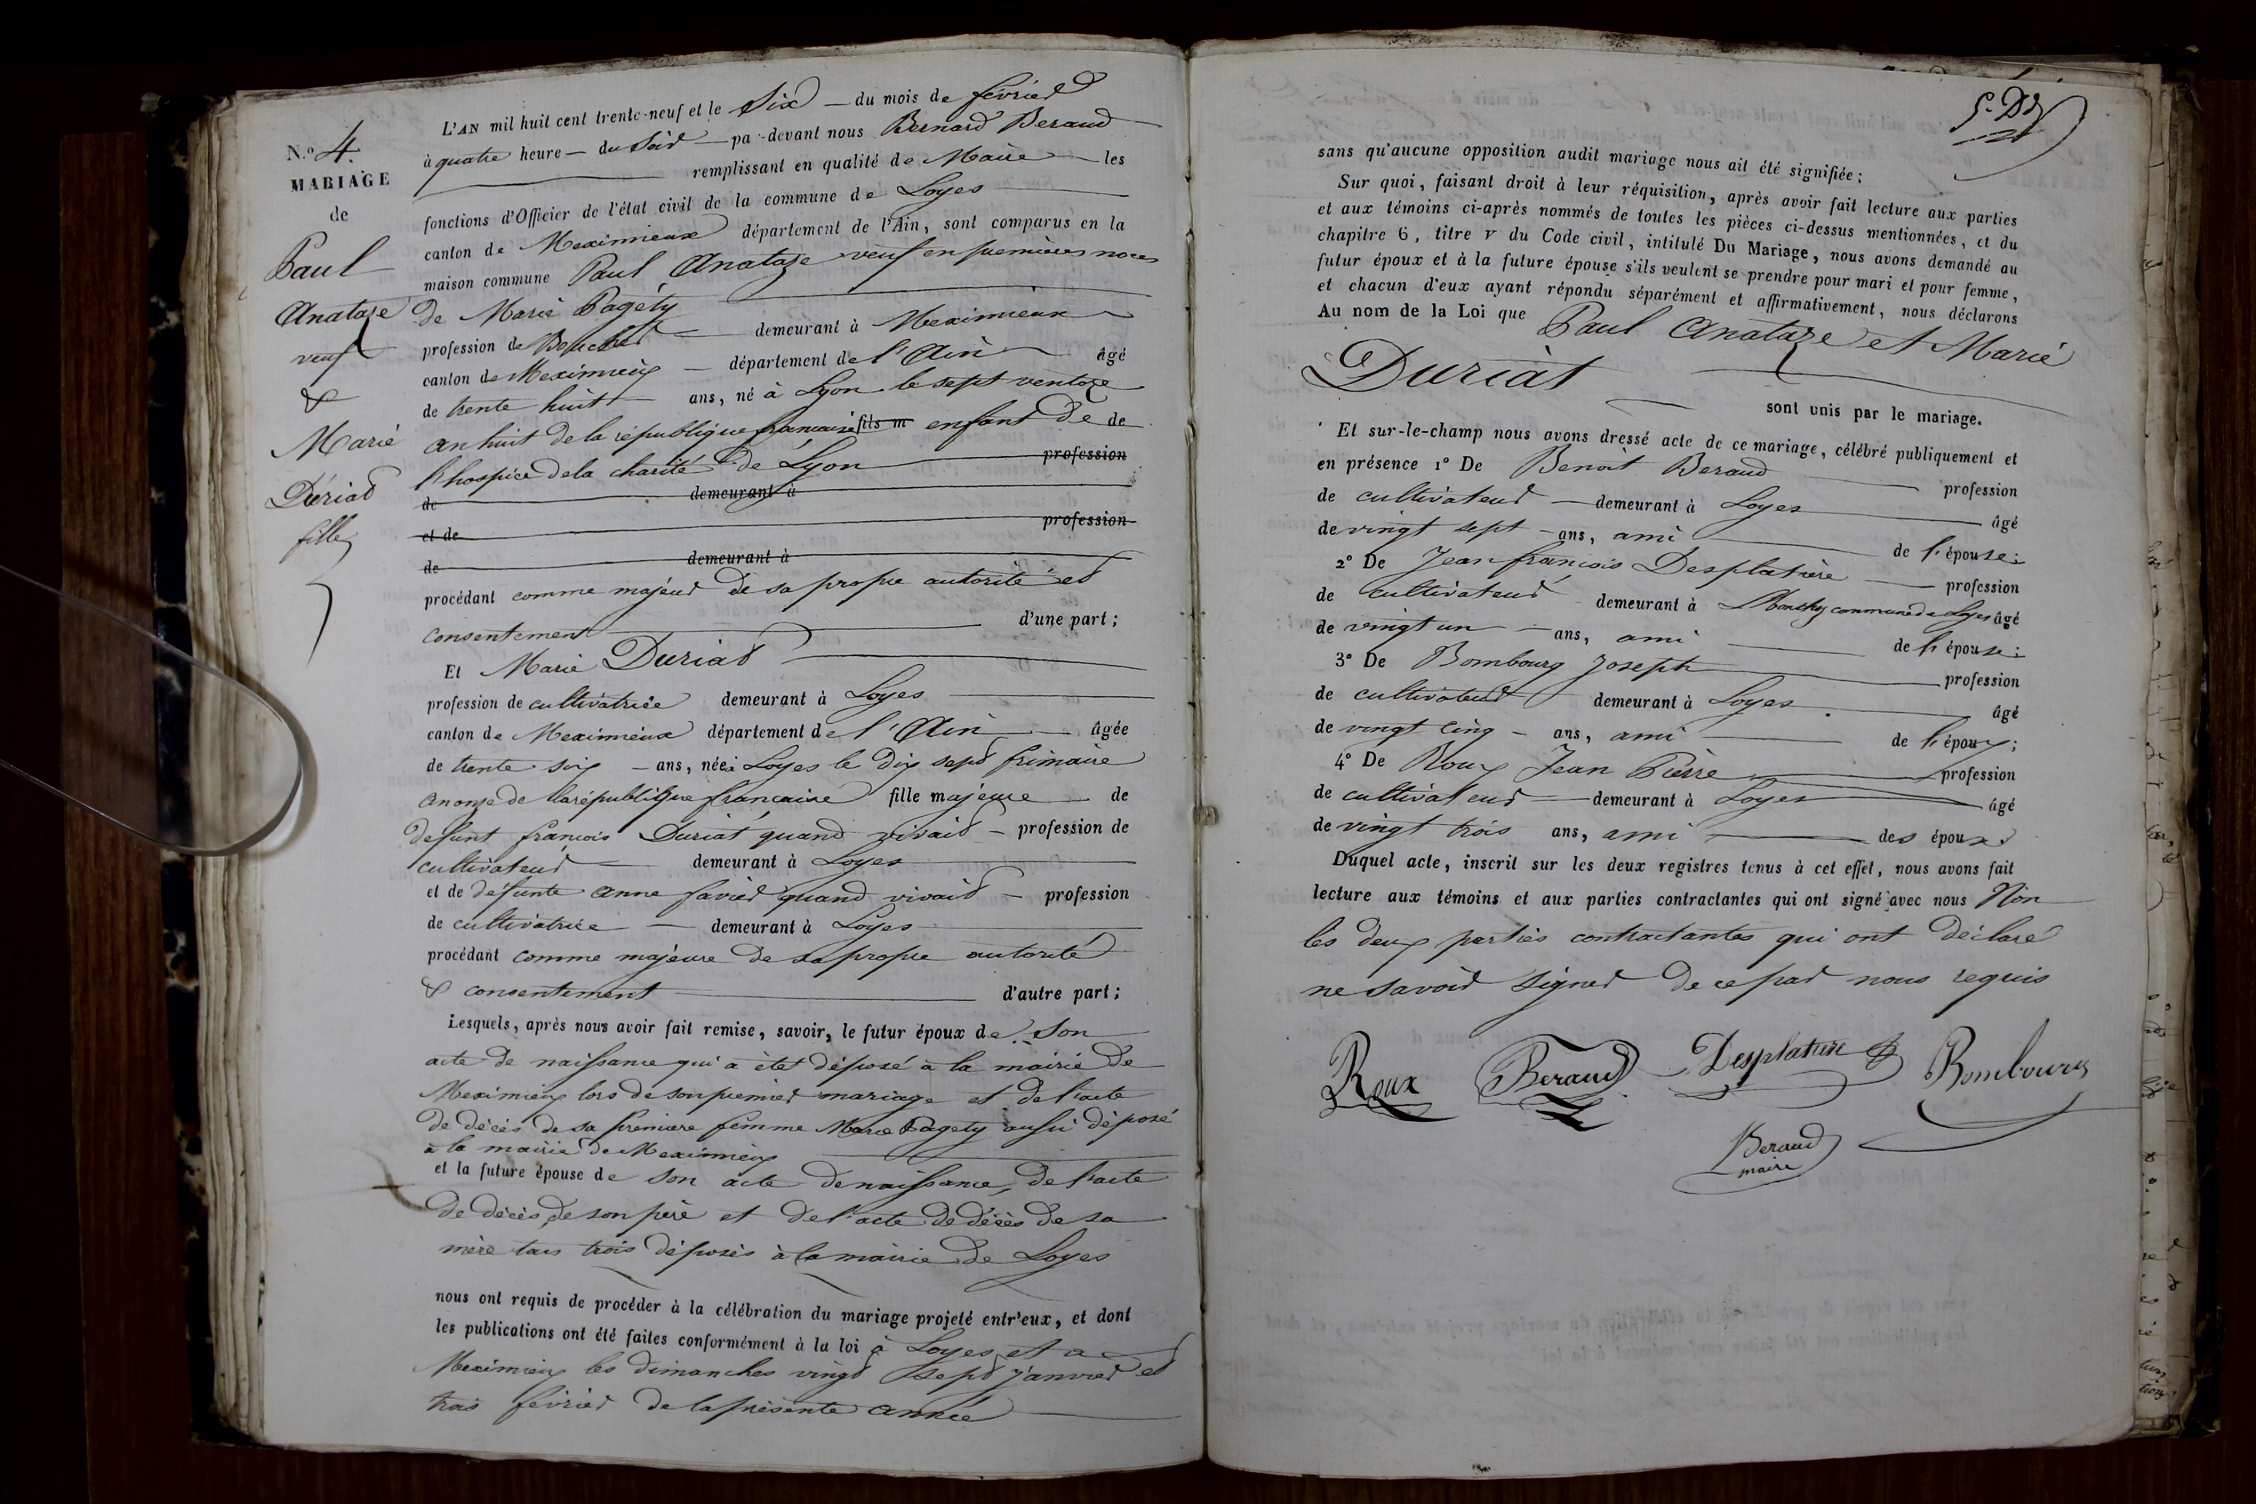 N.o 4.
MARIAGE
de
Paul
Anataze
veuf
&
Marie
Duriat
fille
L'AN mil huit cent trente-neuf et le Six du mois de février
à quatre heure du Soir par-devant nous Bernard Beraud
remplissant en qualité de Maire les
fonctions d'Officier de l'état civil de la commune de Loyes
canton de Meximieux département de l'Ain, sont comparus en la
maison commune Paul Anataze veuf en premières noces
de Marie Pagéty
profession de Boucher demeurant à Meximieux
canton de Meximieux département de l'Ain âgé
de trente huit ans, né à Lyon le sept ventoze
an huit de la république francaise fils m enfant de de
l'hospice de la charité de Lyon profession
de demeurant à
et de profession
de demeurant à
procédant comme majeur de sa propre autorité et
consentement d'une part;
Et Marie Duriat
profession de cultivatrice demeurant à Loyes
canton de Meximieux département de l'Ain âgée
de trente six ans, née à Loyes le dix sept frimaire
an onze de la république francaise fille majeure de
defunt francois Duriat quand vivait profession de
cultivateur demeurant à Loyes
et de défunte anne favier quand vivait profession
de cultivatrice demeurant à Loyes
procédant comme majeure de sa propre autorité
& consentement d'autre part;
Lesquels, après nous avoir fait remise, savoir, le futur époux de son
acte de naissance qui a étet déposé à la mairie de
Meximieux lors de son premier mariage et de l'acte
de décès de sa premiere femme Marie Pagety aussi déposé
à la mairie de Meximieux
et la future épouse de son acte de naissance, de l'acte
de décès de son père et de l'acte de décès de sa
mère tous trois déposés à la mairie de Loyes
nous ont requis de procéder à la célébration du mariage projeté entr'eux, et dont
les publications ont été faites conformément à la loi à Loyes et a
Meximieux les dimanches vingt sept janvier et
trois février de la présente année
sans qu'aucune opposition audit mariage nous ait été signifiée;
Sur quoi, faisant droit à leur réquisition, après avoir fait lecture aux parties
et aux témoins ci-après nommés de toutes les pièces ci-dessus mentionnées, et du
chapitre 6, titre v du Code civil, intitulé Du Mariage, nous avons demandé au
futur époux et à la future épouse s'ils veulent se prendre pour mari et pour femme,
et chacun d'eux ayant répondu séparément et affirmativement, nous déclarons
Au nom de la Loi que Paul Anataze et Marie
Duriat
sont unis par le mariage.
Et sur-le-champ nous avons dressé acte de ce mariage, célébré publiquement et
en présence 1° De Benoit Beraud profession
de cultivateur demeurant à Loyes âgé
de vingt sept ans, ami de l'épouse;
2° De Jean francois Desplature profession
de cultivateur demeurant à commune de Loyes âgé
de vingt un ans, ami de l'épouse;
3° De Bombourg Joseph profession
de cultivateur demeurant à Loyes âgé
de vingt cinq ans, ami de l'époux;
4° De Roux Jean Pierre profession
de cultivateur demeurant à Loyes âgé
de vingt trois ans, ami des époux
Duquel acte, inscrit sur les deux registres tenus à cet effet, nous avons fait
lecture aux témoins et aux parties contractantes qui ont signé avec nous Non
les deux parties contractantes qui ont déclaré
ne savoir signer de ce par nous requis
Roux Beraud Desplature Bombourg
Beraud
maire